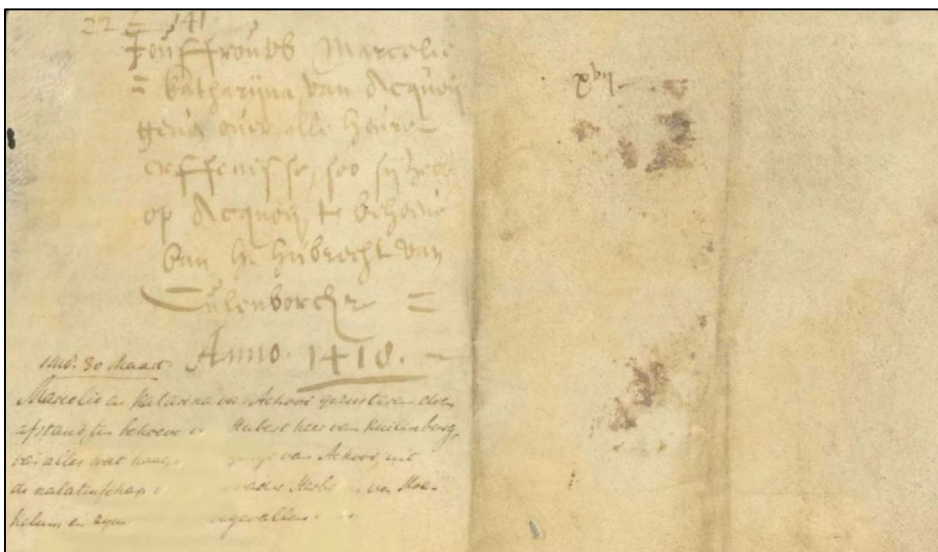 22 = 141
Jouffrouwe Marcelie
= Katharijna van Acquoij
geven over alle heure
erffenisse, soo sij hebb
op Acquoij, te behoeve
van H. Hubrecht van
Culenborch =
Anno. 1418. -
xvij
1418. 30 Maart.
Marcelie en Katarina van Ackooi gezusteren doen
afstand, ten behoeve v Hubert heer van Kuilenburg,
van alles wat haar van Ackooi, uit
de nalatenschap vader Herb van
en